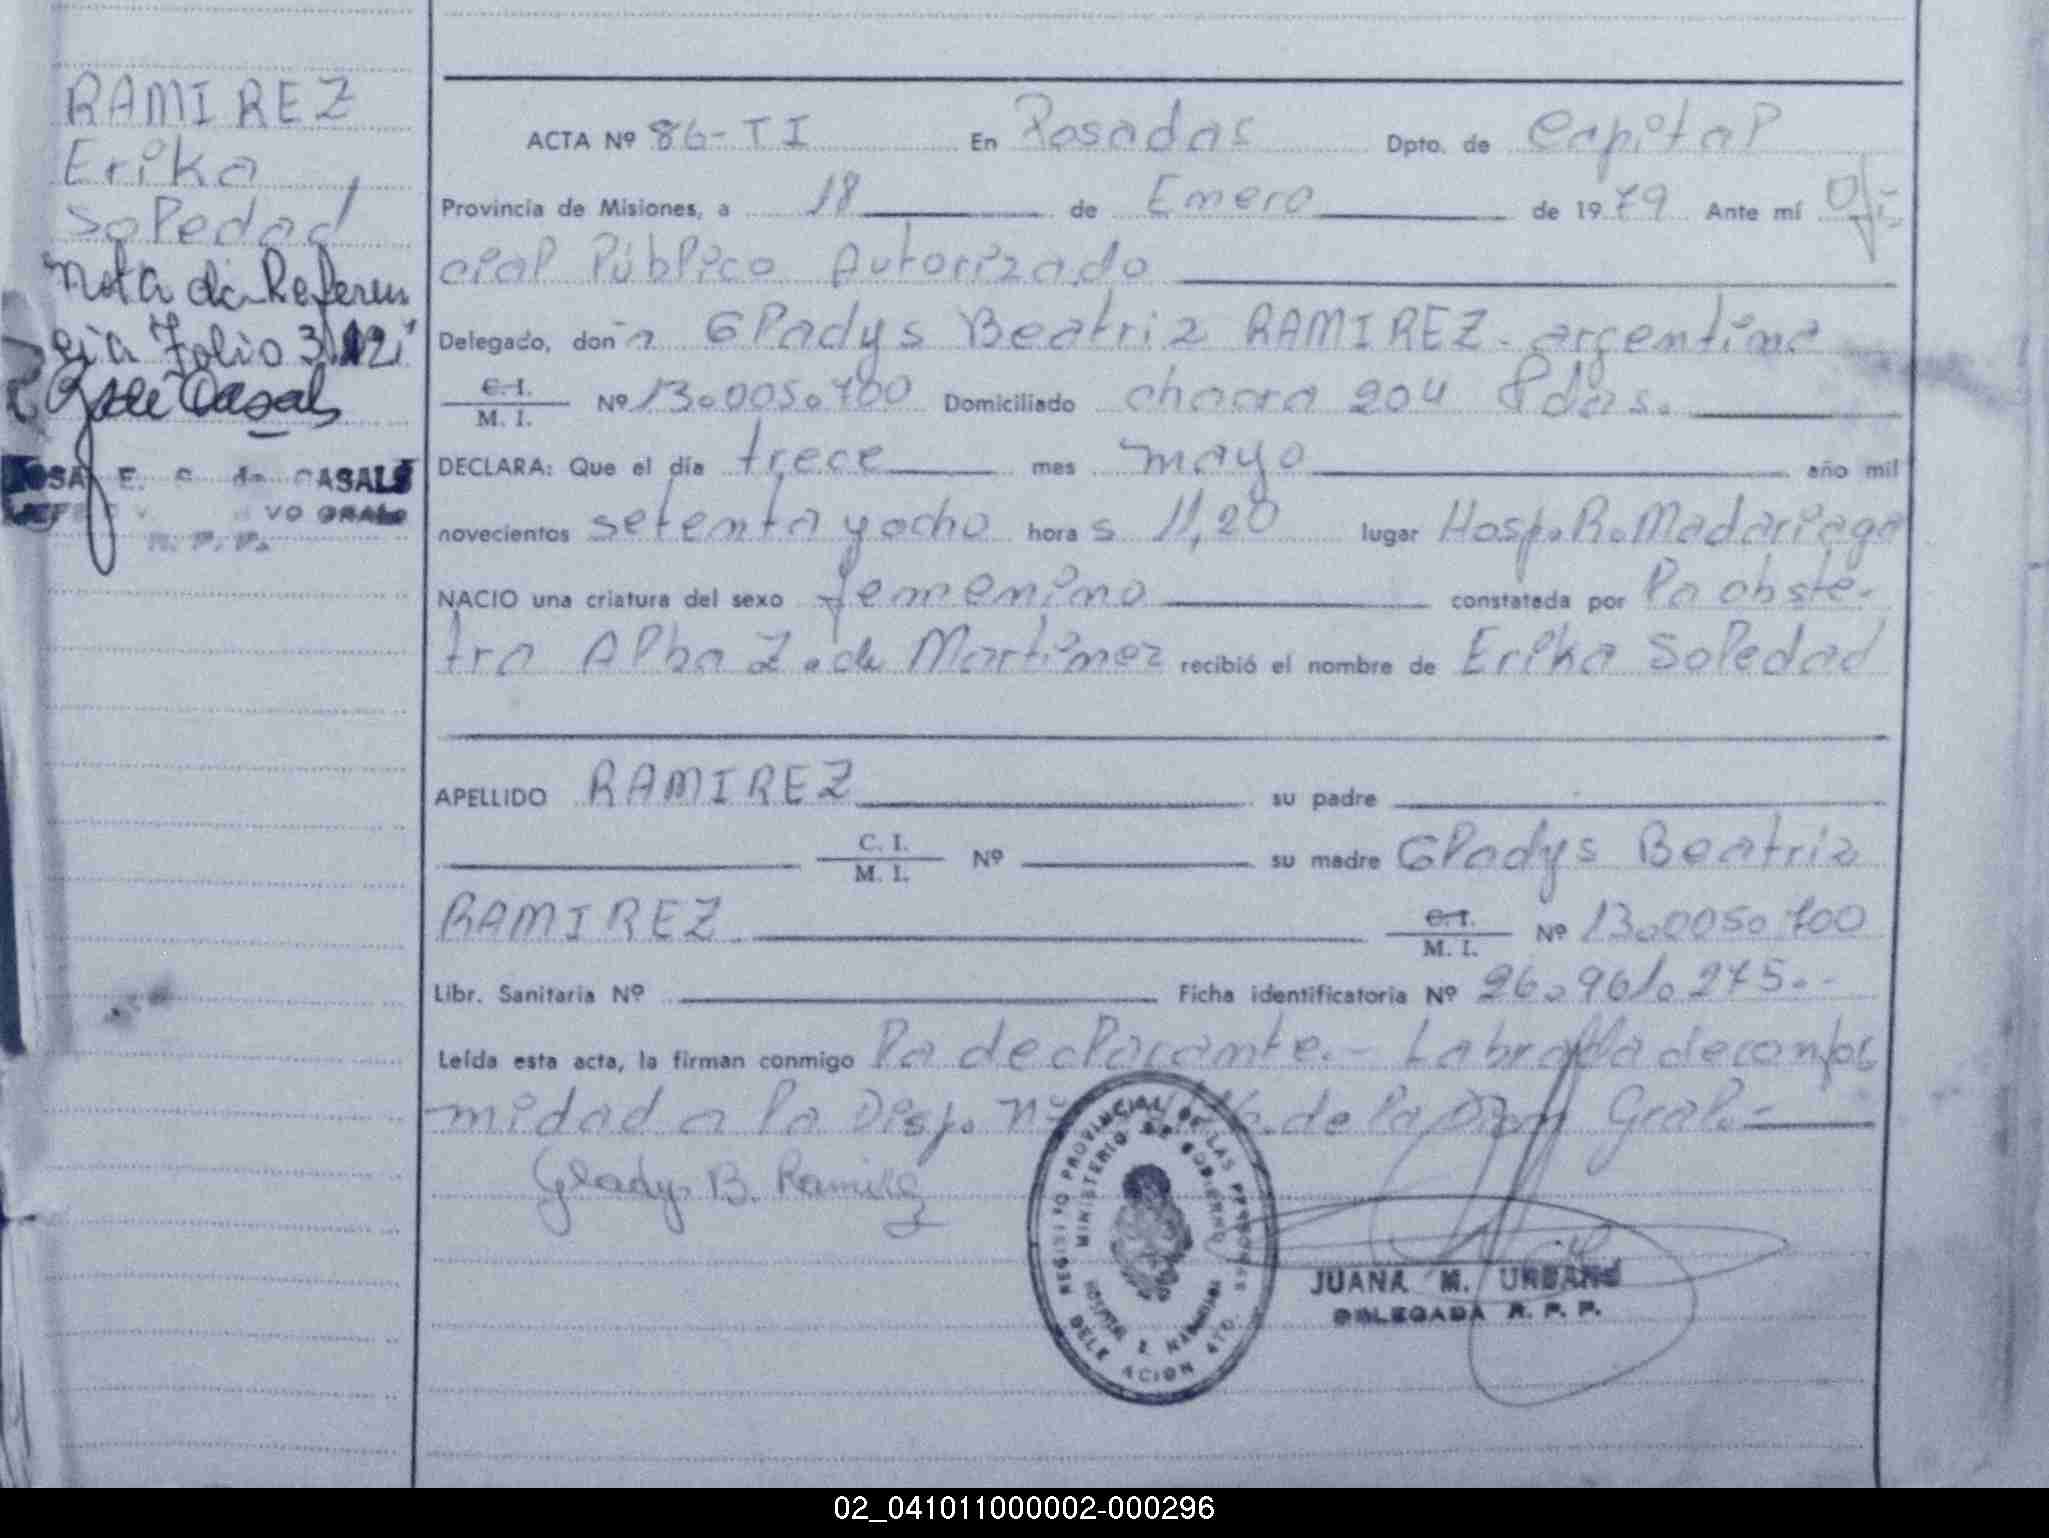 RAMIREZ
Erika
Soledad
Nota de Referen
cia Folio
ACTA Nº 86-TI En Posadas Dpto. de Capital
Provincia de Misiones, a 18 de Enero de 1979 Ante mí Ofi-
cial Público Autorizado
Delegado, doña Gladys Beatriz RAMIREZ- argentina
C.I. M. I. Nº 13.005.700 Domiciliado chacra 204 Pdas.
DECLARA: Que el día trece mes mayo año mil
novecientos setenta y ocho horas 11,20 lugar Hosp. R. Madariaga
NACIO una criatura del sexo femenino constatada por la obste-
tra Alba Z. de Martinez recibió el nombre de Erika Soledad
APELLIDO RAMIREZ su padre
C. I. M. I. Nº su madre Gladys Beatriz
RAMIREZ C.I. M. I. Nº 13.005.700
Libr. Sanitaria Nº Ficha identificatoria Nº 26.961.275.-
Leída esta acta, la firman conmigo la declarante.- Labrada de confor
midad a la Disp. Nº de la Gral.-
Gladys B. Ramirez
REGISTRO PROVINCIAL DE LAS PERSONAS
MINISTERIO DE GOBIERNO
HOSPITAL R. MADARIAGA
DELEGACION
JUANA M. URBANO
DELEGADA R. P. P.
E. de CASALS
R. P. P.
02_041011000002-000296